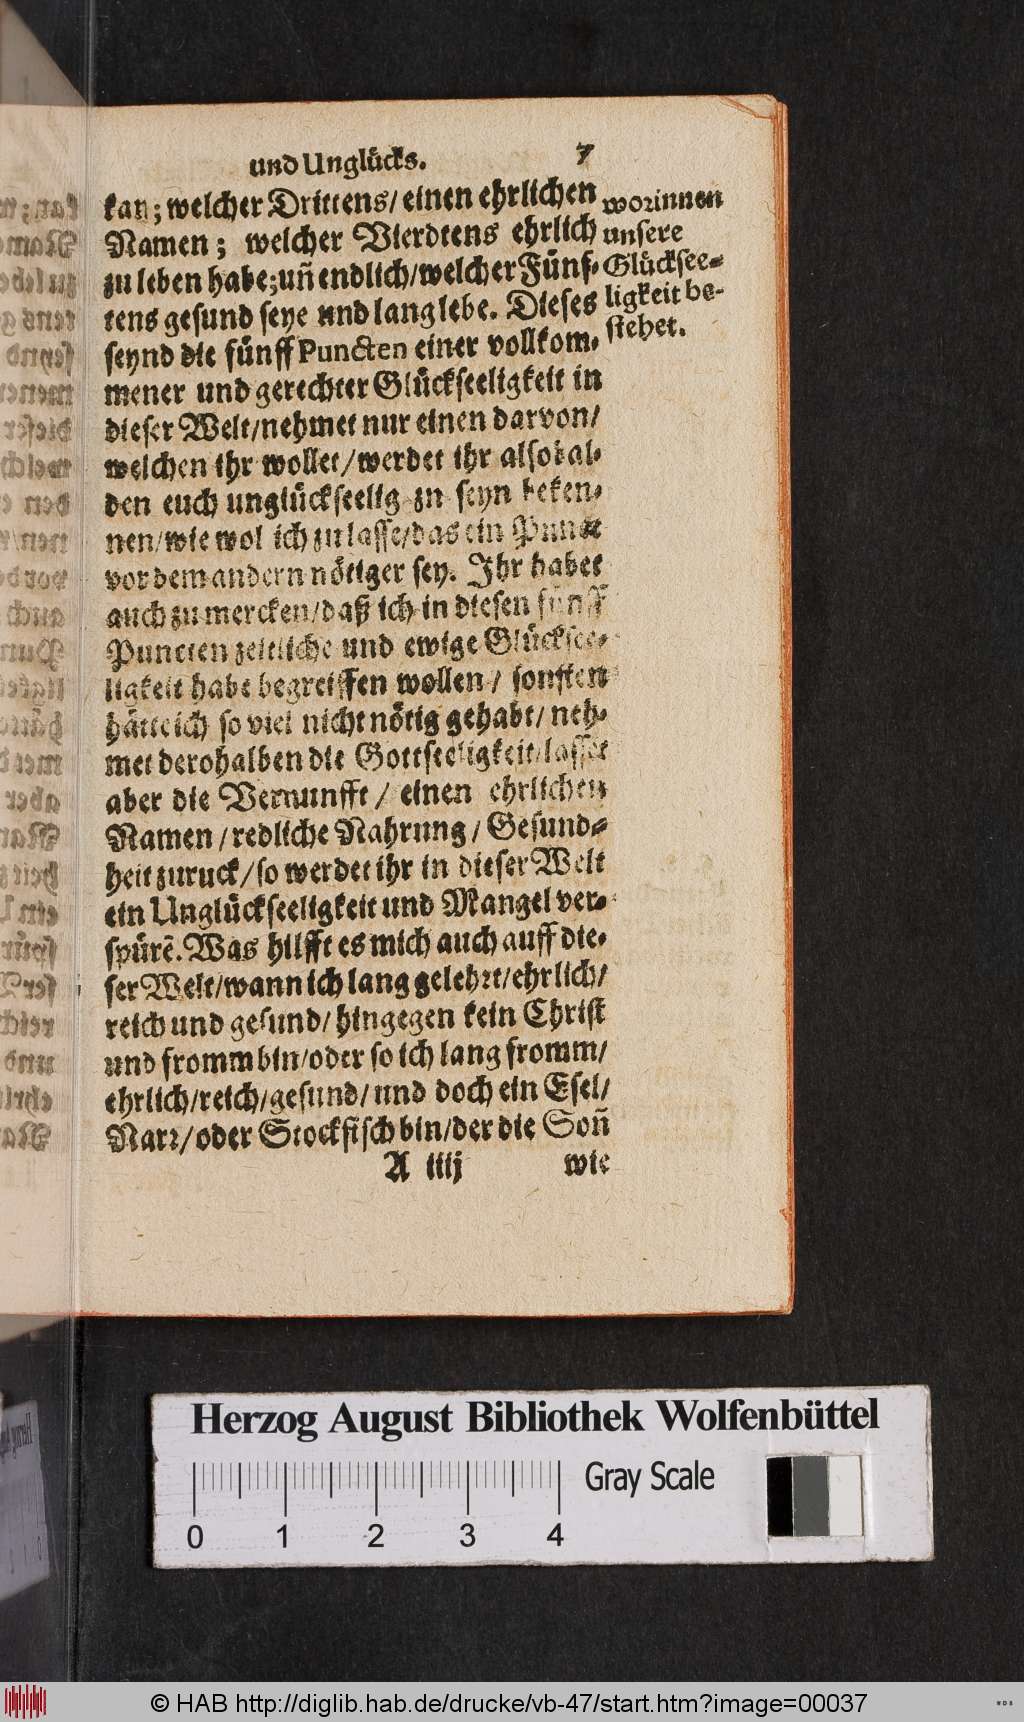 und Unglücks. 7
kan; welcher Drittens/ einen ehrlichen
Namen; welcher Vierdtens ehrlich
zu leben habe; uñ endlich/ welcher Fünf-
tens gesund seye und lang lebe. Dieses
seynd die fünff Puncten einer vollkom-
mener und gerechter Glückseeligkeit in
dieser Welt/ nehmet nur einen darvon/
welchen ihr wollet/ werdet ihr alsobal-
den euch unglückseelig zu seyn beken-
nen/ wie wol ich zu lasse/ das ein Punct
vor dem andern nötiger sey. Ihr habet
auch zu mercken/ daß ich in diesen fünff
Puncten zeitliche und ewige Glücksee-
ligkeit habe begreiffen wollen/ sonsten
hätte ich so viel nicht nötig gehabt/ neh-
met derohalben die Gottseeligkeit/ lasset
aber die Vernunfft/ einen ehrlichen
Namen/ redliche Nahrung/ Gesund-
heit zuruck/ so werdet ihr in dieser Welt
ein Unglückseeligkeit und Mangel ver-
spürẽ. Was hilfft es mich auch auff die-
ser Welt/ wann ich lang gelehrt/ ehrlich/
reich und gesund/ hingegen kein Christ
und fromm bin/ oder so ich lang fromm/
ehrlich/ reich/ gesund/ und doch ein Esel/
Narr/ oder Stockfisch bin/ der die Soñ
A iiij wie
worinnen
unsere
Glücksee-
ligkeit be-
stehet.
Herzog August Bibliothek Wolfenbüttel
Gray Scale
0 1 2 3 4
© HAB http://diglib.hab.de/drucke/vb-47/start.htm?image=00037